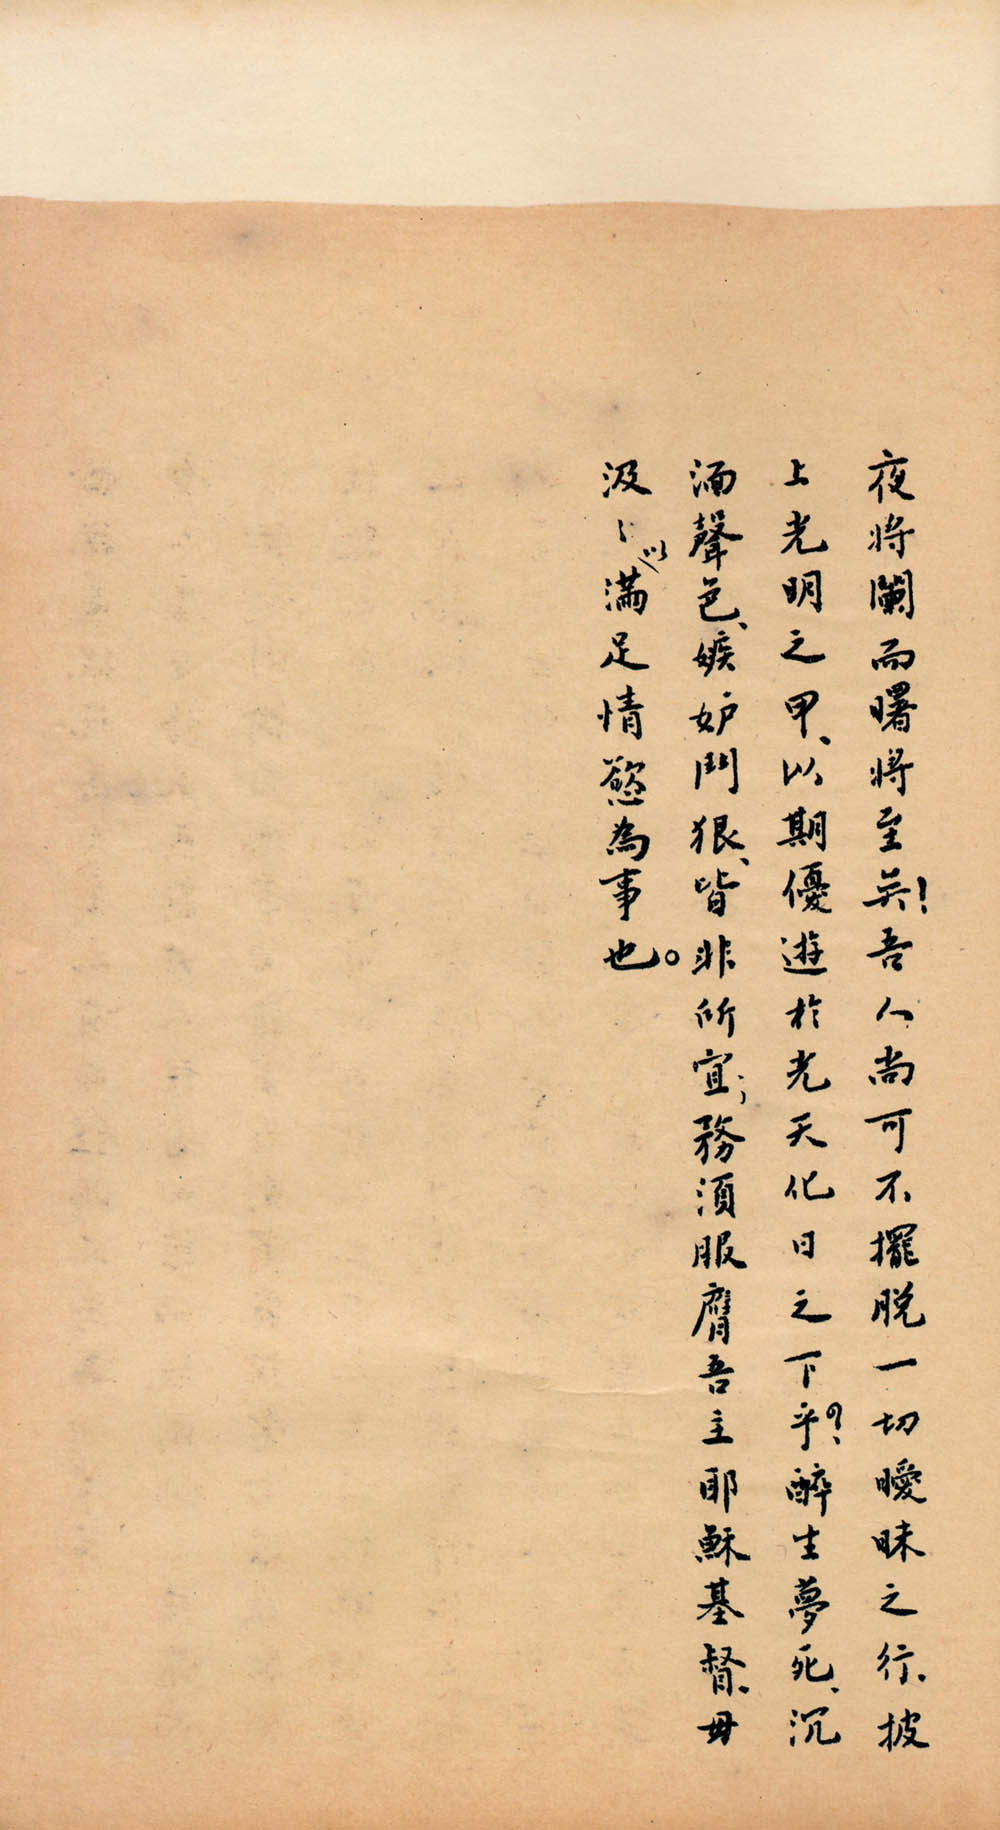 夜將闌而曙將至矣!吾人尚可不擺脫一切曖昧之行、披
上光明之甲、以期優遊於光天化日之下乎?醉生夢死、沉
湎聲色、嫉妒鬥狠、皆非所宜;務須服膺吾主耶穌基督、毋
汲〻以滿足情慾為事也。